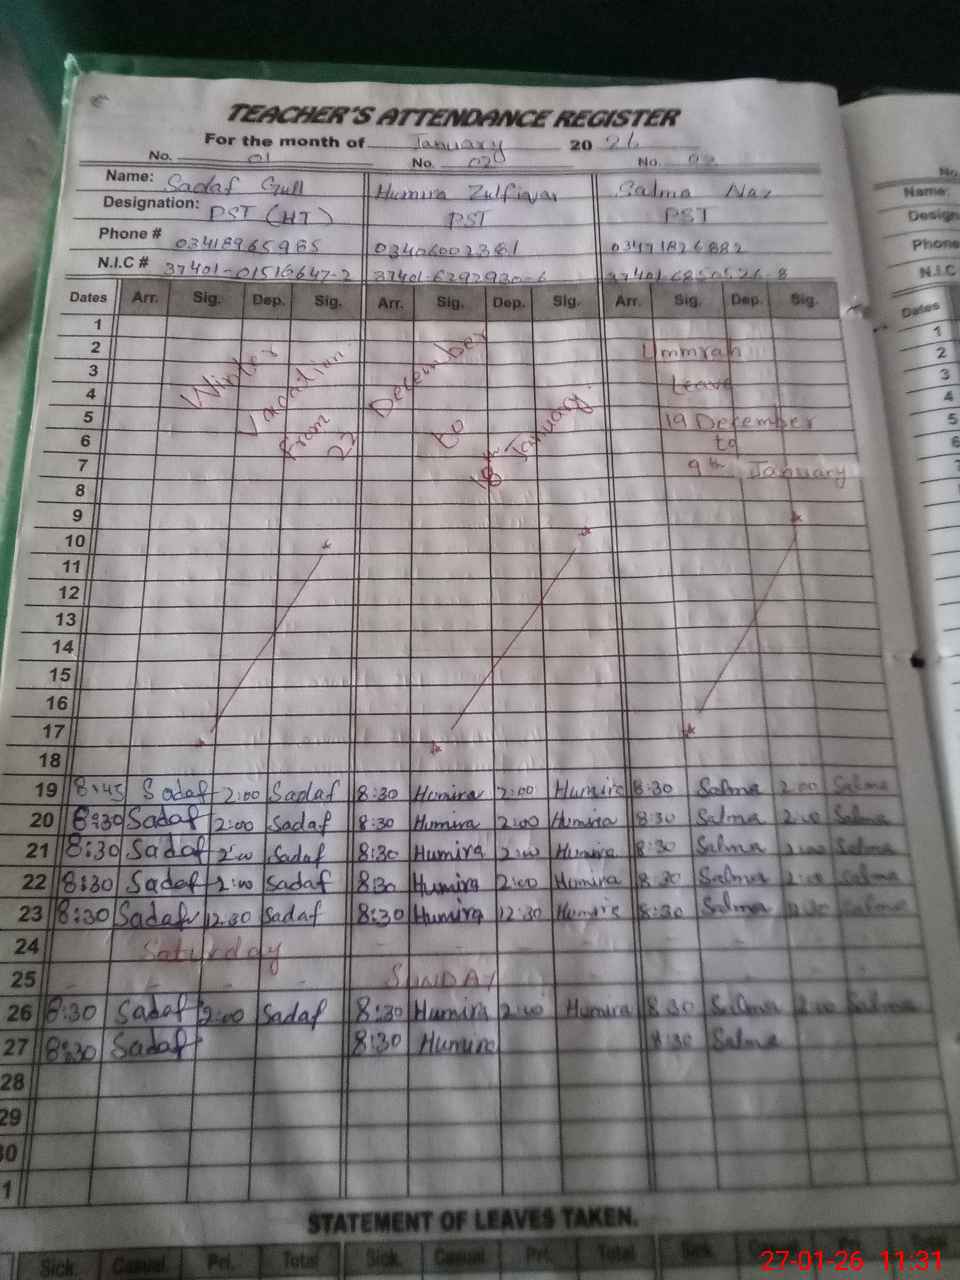 TEACHER'S ATTENDANCE REGISTER
For the month of January 20 26
No. 01 No. 02 No.
Name: Sadaf Gull Humira Zulfiqar Salma Naz
Designation: PST (HT) PST PST
Phone # 03418965985 03406002381 03471826882
N.I.C # 37401-01516647-2 37401-6292930-6
Dates Arr. Sig. Dep. Sig. Arr. Sig. Dep. Sig. Arr. Sig. Dep. Sig.
1
2 Ummrah
3
Winter Vacation From 22 December to 18th January
4 Leave
5 19 December
6 to
7 9th January
8
9
10
11
12
13
14
15
16
17
18
19 8:45 Sadaf 2:00 Sadaf 8:30 Humira 2:00 Humira 8:30 Salma 2:00 Salma
20 8:30 Sadaf 2:00 Sadaf 8:30 Humira 2:00 Humira 8:30 Salma 2:00 Salma
21 8:30 Sadaf 2:00 Sadaf 8:30 Humira 2:00 Humira 8:30 Salma 2:00 Salma
22 8:30 Sadaf 2:00 Sadaf 8:30 Humira 2:00 Humira 8:30 Salma 2:00 Salma
23 8:30 Sadaf 12:30 Sadaf 8:30 Humira 12:30 Humira 8:30 Salma 12:30 Salma
24 Saturday
25 SUNDAY
26 8:30 Sadaf 2:00 Sadaf 8:30 Humira 2:00 Humira 8:30 Salma 2:00 Salma
27 8:30 Sadaf 8:30 Humira 8:30 Salma
28
29
30
1
STATEMENT OF LEAVES TAKEN.
Sick. Casual. Pri. Total Sick. Casual Pri. Total Sick Total
No.
Name:
Design
Phone
N.I.C
Dates
1
2
3
4
5
6
7
8
9
10
11
12
13
14
15
16
17
27-01-26 11:31